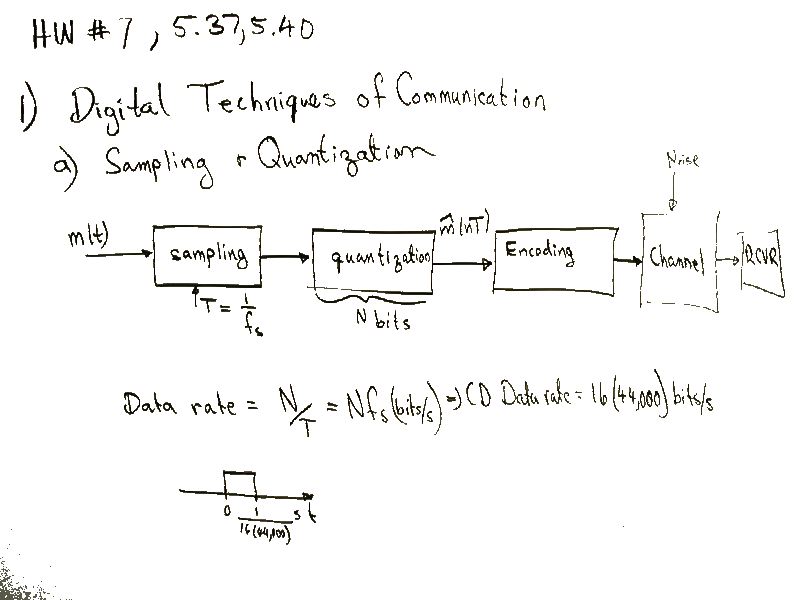 HW # 7, 5.37, 5.40
1) Digital Techniques of Communication
a) Sampling & Quantization
Noise
m(t)
sampling
quantization
m̂(nT)
Encoding
Channel
RCVR
T = 1/fs
N bits
Data rate = N/T = Nfs (bits/s) => CD Data rate = 16(44,000) bits/s
0
1/16(44,100) s
t